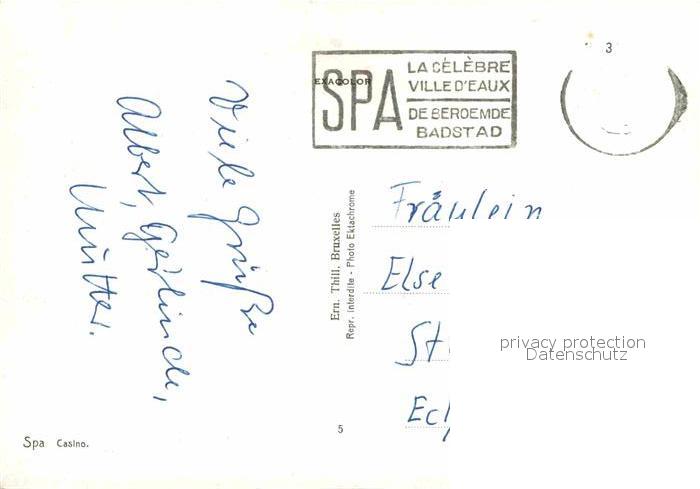 3
EXACOLOR
SPA
LA CÉLÈBRE
VILLE D'EAUX
DE BEROEMDE
BADSTAD
Viele Grüße
Albert, Gerlinde,
Mutter.
Ern. Thill, Bruxelles
Repr. Interdite - Photo Ektachrome
Fräulein
Else
St
Ecl
privacy protection
Datenschutz
5
Spa Casino.